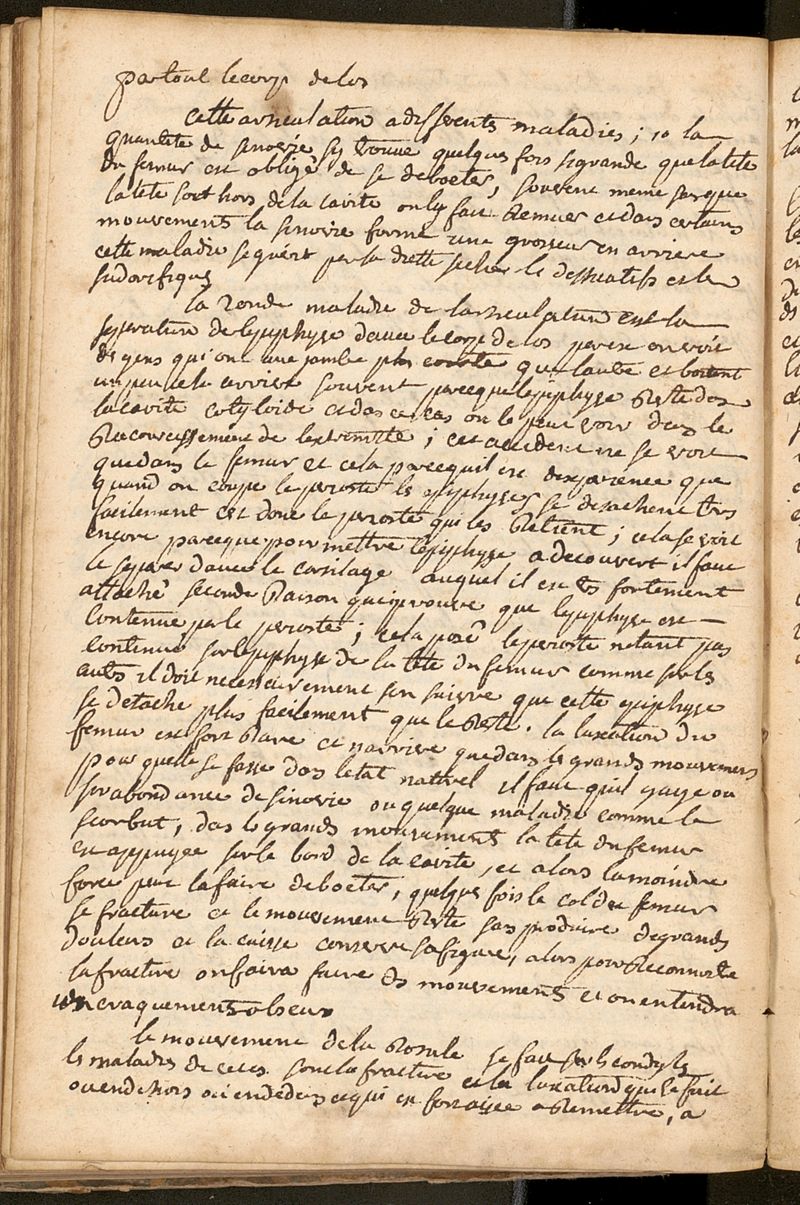 partout le corp de los
cette articulation a differents maladies; 1o la
quantite de sinovie sy trouve quelques fois si grande que la tete
du femur est obligé de se deboeter, souvent meme parque
la tete sort hors de la cavite on ly fait Remuer et dans certains
mouvements la sinovie forme une grosseur en arriere
cette maladie se guérit par la diette seche les dessicatifs et les
sudorifiques
la 2onde maladie de larticulation est la
separation de lepiphyse davec le corp de los par ex on voit
des gens qui ont une jambe plus courte que lautre et boitent
un peu cela arrive souvent parceque lepiphyse Reste dans
la cavite cotyloide et das ce cas on le peut voir dans le
Racourcissement de lextremité; cet accident ne se voit
que dans le femur et cela parcequil est dexperience que
quand on coupe le perioste les epiphyses se detachent tres
facilement cest donc le perioste qui les Retient; cela se voit
encore parceque pour mettre lepiphyse a decouvert il faut
le separer davec le cartilage auquel il est tres fortement
attaché seconde Raison qui prouve que lepiphyse est
contenue par le perioste; cela posé le perioste netant pas
contenue sur lepiphyse de la tete du femur comme sur les
autres il doit necessairement sen suivre que cette epiphyse
se detache plus facilement que le Reste. la luxation du
femur est fort Rare et narrive que dans les grands mouvemens
pour quelle se fasse dans letat naturel il faut quil y aye ou
surabondance de sinovie ou quelque maladie comme le
scorbut, das les grands mouvements la tete du femur
est appuyée sur le bord de la cavite, et alors la moindre
force peut la faire deboeter, quelques fois le col du femur
se fracture et le mouvement Reste sans produire de grands
douleurs et la cuisse conserve sa figure, alors pour Reconnoitre
la fracture on faira faire des mouvements et on entendra
un craquement obscur
le mouvement de la Rotule se fait sur les condyles
les maladies de ceux sont la fracture et la luxation qui se fait
ou en dehors ou en dedans ce qui est fort aisée a Remettre, a